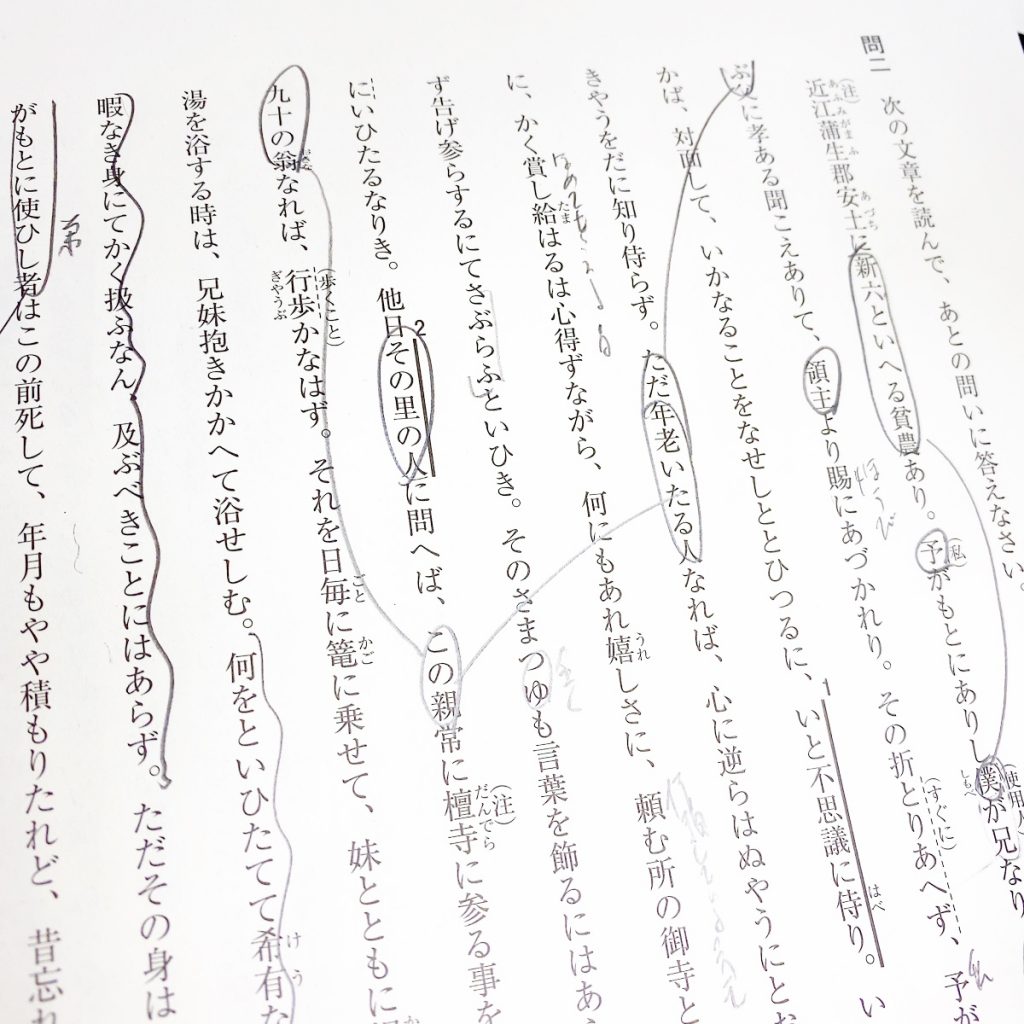 問二　次の文章を読んで、あとの問いに答えなさい。
近江蒲生郡安土に新六といへる貧農あり。予がもとにありし僕が兄なり
ぶ父に孝ある聞こえありて、領主より賜にあづかれり。その折とりあへず、予が
かば、対面して、いかなることをなせしととひつるに、いと不思議に侍り。い
きやうをだに知り侍らず。ただ年老いたる人なれば、心に逆らはぬやうにとお
に、かく賞し給はるは心得ずながら、何にもあれ嬉しさに、頼む所の御寺と
ず告げ参らするにてさぶらふといひき。そのさまつゆも言葉を飾るにはあ
にいひたるなりき。他日その里の人に問へば、この親常に檀寺に参る事を
九十の翁なれば、行歩かなはず。それを日毎に篭に乗せて、妹とともに
湯を浴する時は、兄妹抱きかかへて浴せしむ。何をといひたてて希有な
暇なき身にてかく扱ふなん、及ぶべきことにはあらず。ただその身は
がもとに使ひし者はこの前死して、年月もやや積もりたれど、昔忘れ